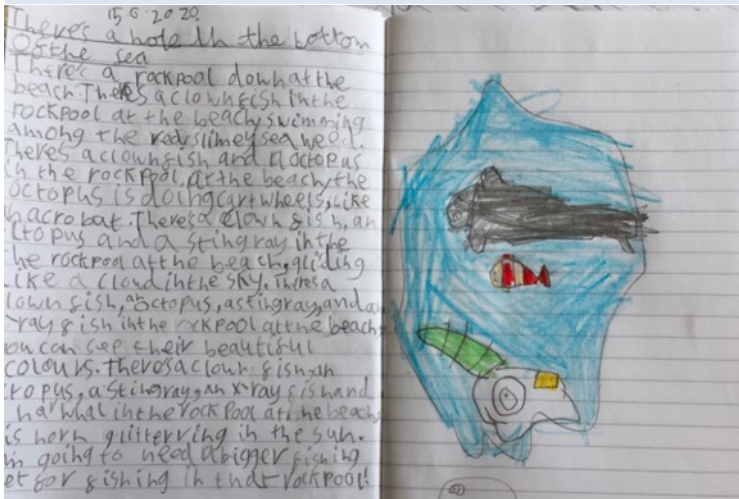 15.6.2020.
There's a hole in the bottom
Of the sea
There's a rockpool down at the
beach. There's a clownfish in the
rockpool at the beach, swimming
among the red, slimey sea weed.
There's a clownfish and a octopus
in the rockpool at the beach, the
octopus is doing cartwheels, like
acrobat. There's a clown fish, an
topus and a stingray in the
he rockpool at the beach, gliding
like a cloud in the sky. There's a
lown fish, octopus, a stingray, and an
-ray fish in the rockpool at the beach
ou can see their beautiful
colours. There's a clown fish an
topus, a stingray, an x-ray fish and
narwhal in the rock pool at the beach,
is horn glitterring in the sun.
m going to need a bigger fishing
et for fishing in that rockpool!